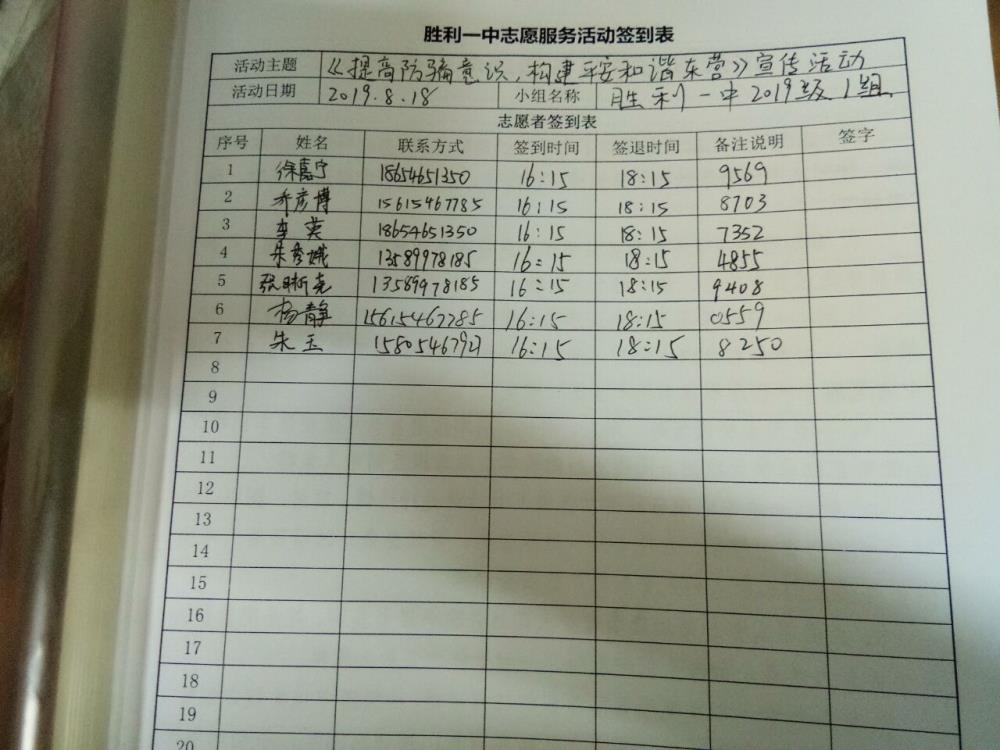 胜利一中志愿服务活动签到表
活动主题 《提高防骗意识,构建平安和谐东营》宣传活动
活动日期 2019.8.18 小组名称 胜利一中2019级1组
志愿者签到表
序号 姓名 联系方式 签到时间 签退时间 备注说明 签字
1 徐嘉宁 18654651350 16:15 18:15 9569
2 乔彦博 15615467785 16:15 18:15 8703
3 李英 18654651350 16:15 18:15 7352
4 朱彦娥 13589978185 16:15 18:15 4855
5 张晰尧 13589978185 16:15 18:15 9408
6 杨静 15615467785 16:15 18:15 0559
7 朱玉 16:15 18:15 8250
8
9
10
11
12
13
14
15
16
17
18
19
20